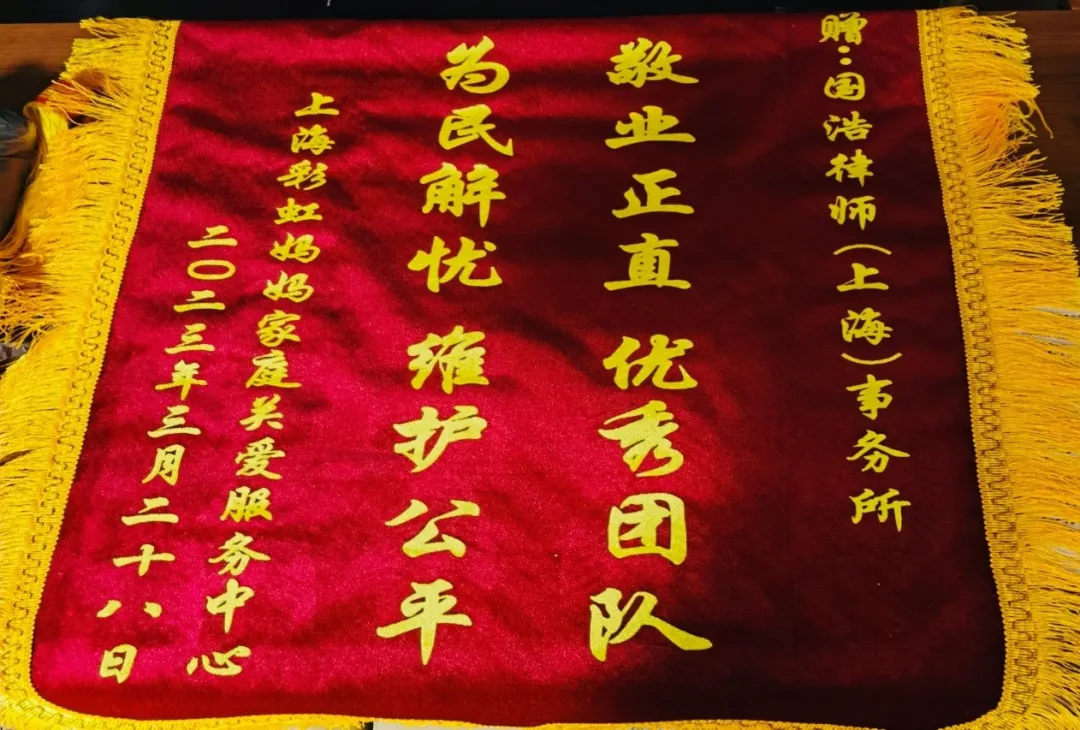 赠:国浩律师(上海)事务所
敬业正直 优秀团队
为民解忧 维护公平
上海彩虹妈妈家庭关爱服务中心
二〇二三年三月二十八日